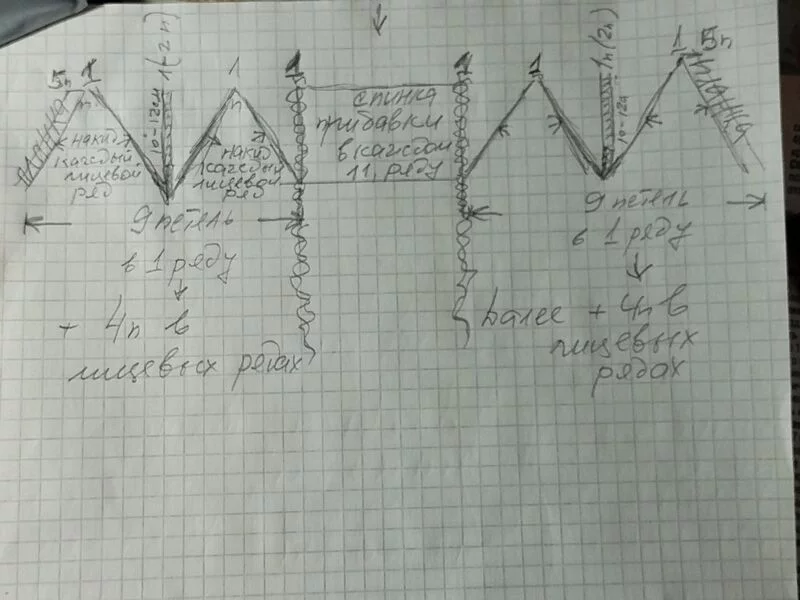 5п
1п
10-12см
1(2п)
1п
1
планка
накид
каждый
лицевой
ряд
накид
каждый
лицевой
ряд
спинка
прибавки
в каждом
11, ряду
1
1
1п(2п)
10-12см
1
5п
планка
9 петель
в 1 ряду
+ 4п в
лицевых рядах
9 петель
в 1 ряду
Далее + 4п в
лицевых
рядах